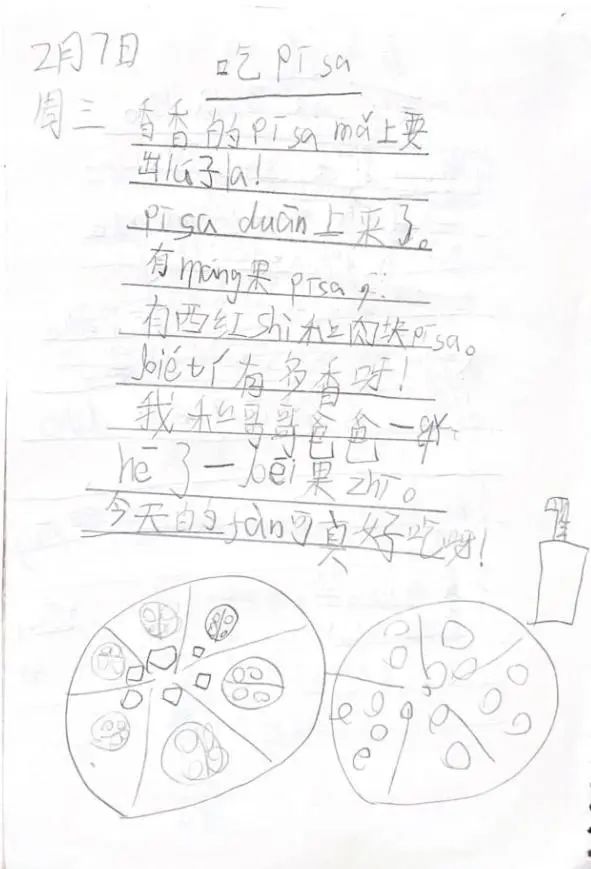 2月7日
吃pīsa
周三
香香的pīsa mǎ上要
出炉子la!
pīsa duān上来了。
有máng果pīsa,
有西红shì和肉块pīsa。
biétí有多香呀!
我和哥哥爸爸一qǐ
hē了一bēi果zhī。
今天的fàn可真好吃呀!